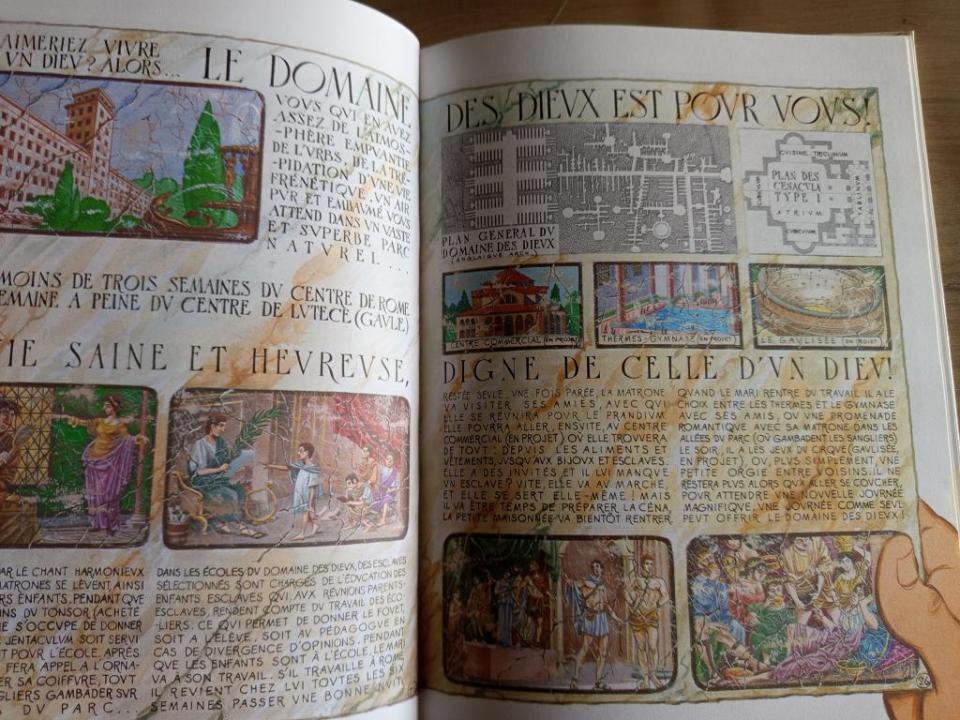 AIMERIEZ VIVRE
VN DIEV? ALORS...
LE DOMAINE
VOVS QVI EN AVEZ
ASSEZ DE L'ATMOS-
-PHÈRE EMPVANTIE
DE L'VRBS, DE LA TRÉ-
-PIDATION D'VNE VIE
FRÉNÉTIQVE. VN AIR
PVR ET EMBAVMÉ VOVS
ATTEND DANS VN VASTE
ET SVPERBE PARC
NATVREL...
MOINS DE TROIS SEMAINES DV CENTRE DE ROME
SEMAINE A PEINE DV CENTRE DE LVTECE (GAVLE)
VIE SAINE ET HEVREVSE,
PAR LE CHANT HARMONIEVX
MATRONES SE LÈVENT AINSI
ENFANTS. PENDANT QVE
DV TONSOR (ACHETÉ
S'OCCVPE DE DONNER
JENTACVLVM SOIT SERVI
POVR L'ÉCOLE. APRÈS
FERA APPEL A L'ORNA-
SA COIFFVRE, TOVT
GAMBADER SVR
DV PARC...
DANS LES ÉCOLES DV DOMAINE DES DIEVX, DES ESCLAVES
SÉLECTIONNÉS SONT CHARGÉS DE L'ÉDVCATION DES
ENFANTS ESCLAVES QVI, AVX RÉVNIONS PARENTS-
ESCLAVES, RENDENT COMPTE DV TRAVAIL DES ÉCO-
-LIERS. CE QVI PERMET DE DONNER LE FOVET,
SOIT A L'ÉLÈVE, SOIT AV PÉDAGOGVE EN
CAS DE DIVERGENCE D'OPINIONS. PENDANT
QVE LES ENFANTS SONT À L'ÉCOLE, LE MARI
VA À SON TRAVAIL. S'IL TRAVAILLE À ROME,
IL REVIENT CHEZ LVI TOVTES LES
SEMAINES PASSER VNE BONNE NVIT.
DES DIEVX EST POVR VOVS!
PLAN GENERAL DV
DOMAINE DES DIEVX
(ANGLAIGVS ARCH.)
CVISINE TRICLINIVM
PLAN DES
CENACVLA
TYPE I
ATRIVM
TABLINVM
CVBICVLVM
CENTRE COMMERCIAL (EN PROJET)
THERMES-GYMNASE (EN PROJET)
LE GAVLISÉE (EN PROJET)
DIGNE DE CELLE D'VN DIEV!
RESTÉE SEVLE, VNE FOIS PARÉE, LA MATRONE
VA VISITER SES AMIES, AVEC QVI
ELLE SE RÉVNIRA POVR LE PRANDIVM.
ELLE POVRRA ALLER, ENSVITE, AV CENTRE
COMMERCIAL (EN PROJET) OÙ ELLE TROVVERA
DE TOVT: DEPVIS LES ALIMENTS ET
VÊTEMENTS, JVSQV'AVX BIJOVX ET ESCLAVES.
ELLE A DES INVITÉS ET IL LVI MANQVE
VN ESCLAVE? VITE, ELLE VA AV MARCHÉ,
ET ELLE SE SERT ELLE-MÊME! MAIS
IL VA ÊTRE TEMPS DE PRÉPARER LA CÉNA,
LA PETITE MAISONNÉE VA BIENTÔT RENTRER
QVAND LE MARI RENTRE DV TRAVAIL IL A LE
CHOIX ENTRE LES THERMES ET LE GYMNASE
AVEC SES AMIS, OV VNE PROMENADE
ROMANTIQVE AVEC SA MATRONE DANS LES
ALLÉES DV PARC (OÙ GAMBADENT LES SANGLIERS)
LE SOIR, IL A LES JEVX DV CIRQVE (GAVLISÉE,
EN PROJET), OV, PLVS SIMPLEMENT, VNE
PETITE ORGIE ENTRE VOISINS. IL NE
RESTERA PLVS ALORS QV'A ALLER SE COVCHER,
POVR ATTENDRE VNE NOVVELLE JOVRNÉE
MAGNIFIQVE, VNE JOVRNÉE COMME SEVL
PEVT OFFRIR LE DOMAINE DES DIEVX!